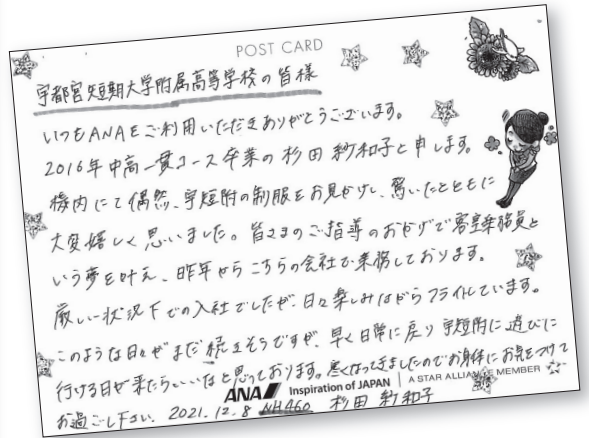 POST CARD
宇都宮短期大学附属高等学校の皆様
いつもANAをご利用いただきありがとうございます。
2016年中高一貫コース卒業の杉田紗和子と申します。
機内にて偶然、宇短附の制服をお見かけし、驚いたとともに
大変嬉しく思いました。皆さまのご指導のおかげで客室乗務員と
いう夢を叶え、昨年からこちらの会社で乗務しております。
厳しい状況下での入社でしたが、日々楽しみながらフライトしています。
このような日々がまだ続きそうですが、早く日常に戻り宇短附に遊びに
行ける日が来たらいいなと思っております。寒くなってきましたのでお身体にお気をつけて
お過ごし下さい。2021.12.8 NH460 杉田紗和子
ANA Inspiration of JAPAN A STAR ALLIANCE MEMBER